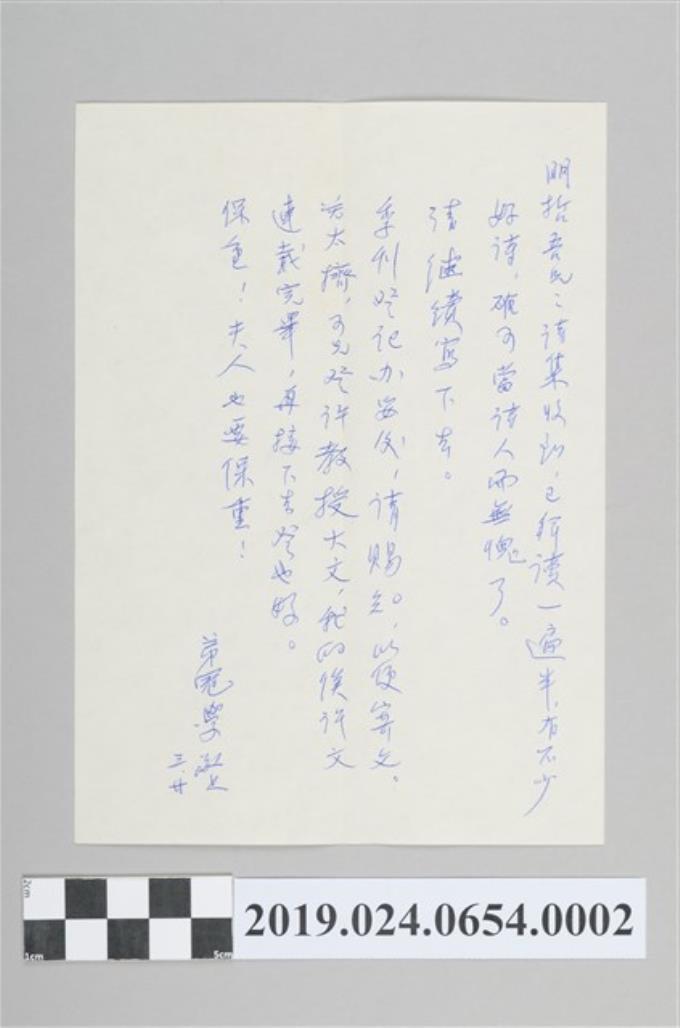 明哲吾兄：詩集收到，已拜讀一遍半，有不少
好詩，確可當詩人而無愧了。
請繼續寫下去。
季刊登記办妥後，請賜知。以便寄文。
若太擠，可先登許教授大文，我的俟許文
連載完畢，再接下去登也好。
保重！夫人也要保重！
弟冠學 上
三.廿
2cm
1cm
5cm
2019.024.0654.0002